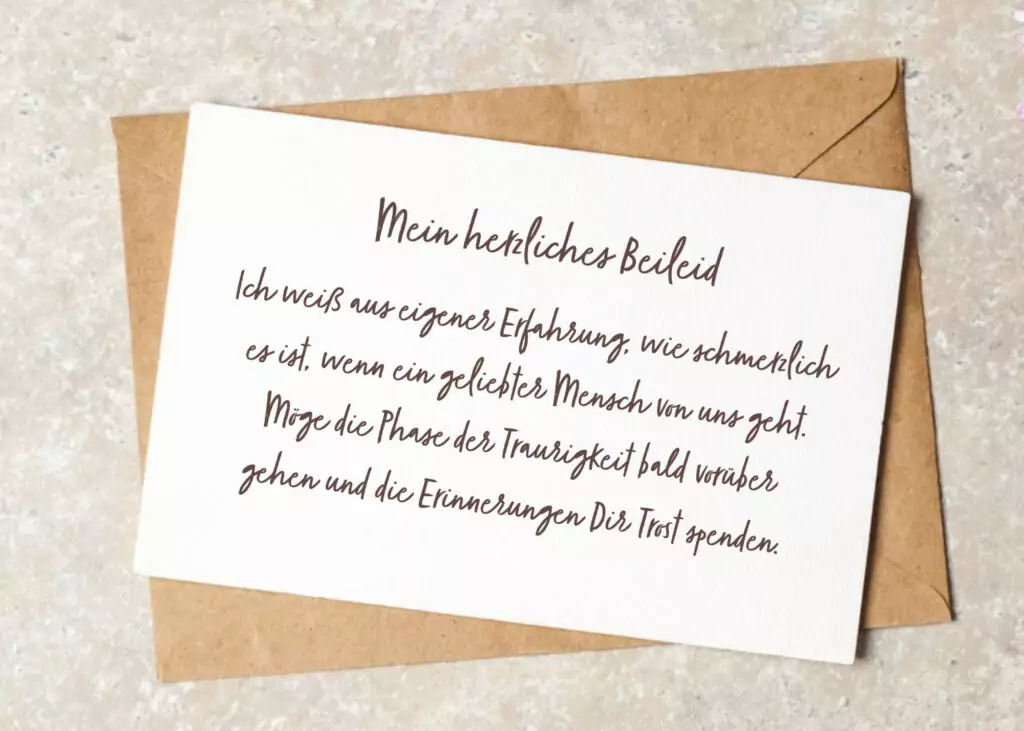 Mein herzliches Beileid
Ich weiß aus eigener Erfahrung, wie schmerzlich
es ist, wenn ein geliebter Mensch von uns geht.
Möge die Phase der Traurigkeit bald vorüber
gehen und die Erinnerungen Dir Trost spenden.